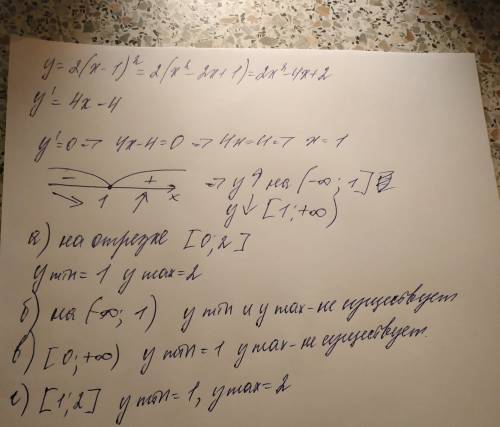 y = 2(x-1)² = 2(x² - 2x + 1) = 2x² - 4x + 2
y' = 4x - 4
y' = 0 => 4x - 4 = 0 => 4x = 4 => x = 1
- + => y ↑ на (-∞; 1]
↘ 1 ↑ x y ↓ [1; +∞)
а) на отрезке [0; 2]
y min = 1 y max = 2
б) на (-∞; 1) y min и y max - не существует
в) [0; +∞) y min = 1 y max - не существует.
г) [1; 2] y min = 1, y max = 2